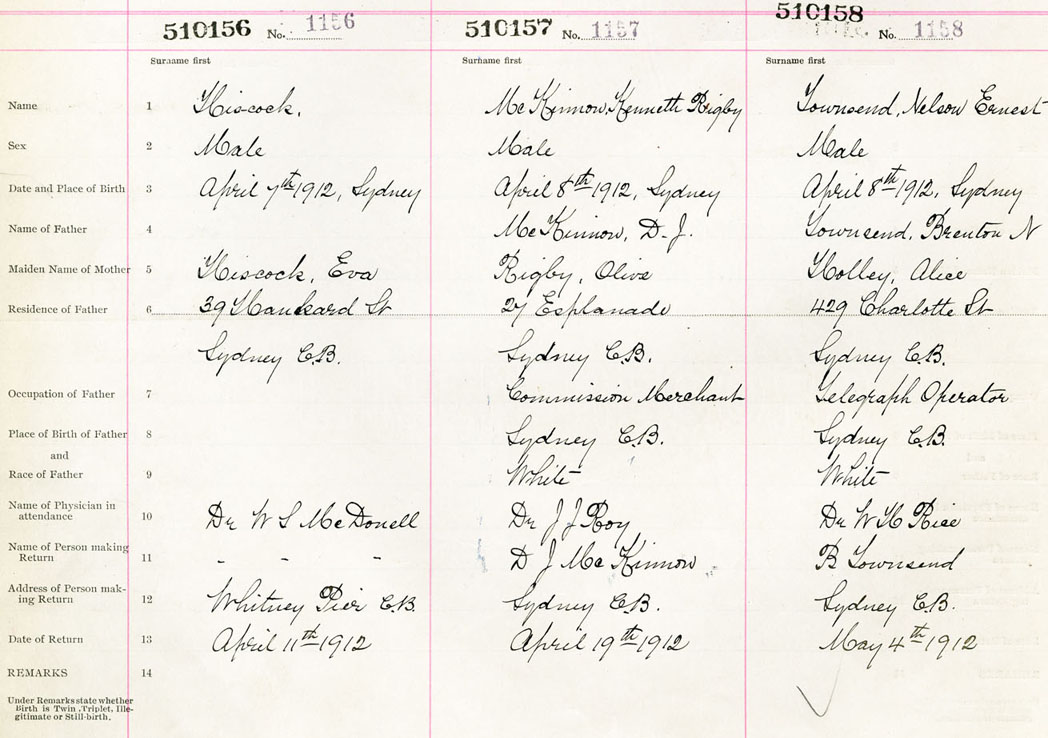 510156 No. 1156
510157 No. 1157
510158 No. 1158
Surname first
Surname first
Surname first
Name 1 Hiscock. McKinnon, Kenneth Rigby Townsend, Nelson Ernest
Sex 2 Male Male Male
Date and Place of Birth 3 April 7th 1912, Sydney April 8th 1912, Sydney April 8th 1912, Sydney
Name of Father 4 McKinnon, D. J. Townsend, Brenton N
Maiden Name of Mother 5 Hiscock, Eva Rigby, Olive Holley, Alice
Residence of Father 6 39 Hankard St 27 Esplanade 429 Charlotte St
Sydney C.B. Sydney C.B. Sydney C.B.
Occupation of Father 7 Commission Merchant Telegraph Operator
Place of Birth of Father 8 Sydney C.B. Sydney C.B.
and
Race of Father 9 White White
Name of Physician in
attendance 10 Dr W S McDonell Dr J J Roy Dr W H Rice
Name of Person making
Return 11 - - D J McKinnon B Townsend
Address of Person mak-
ing Return 12 Whitney Pier C.B. Sydney C.B. Sydney C.B.
Date of Return 13 April 11th 1912 April 19th 1912 May 4th 1912
REMARKS 14
Under Remarks state whether
Birth is Twin, Triplet, Ille-
gitimate or Still-birth.